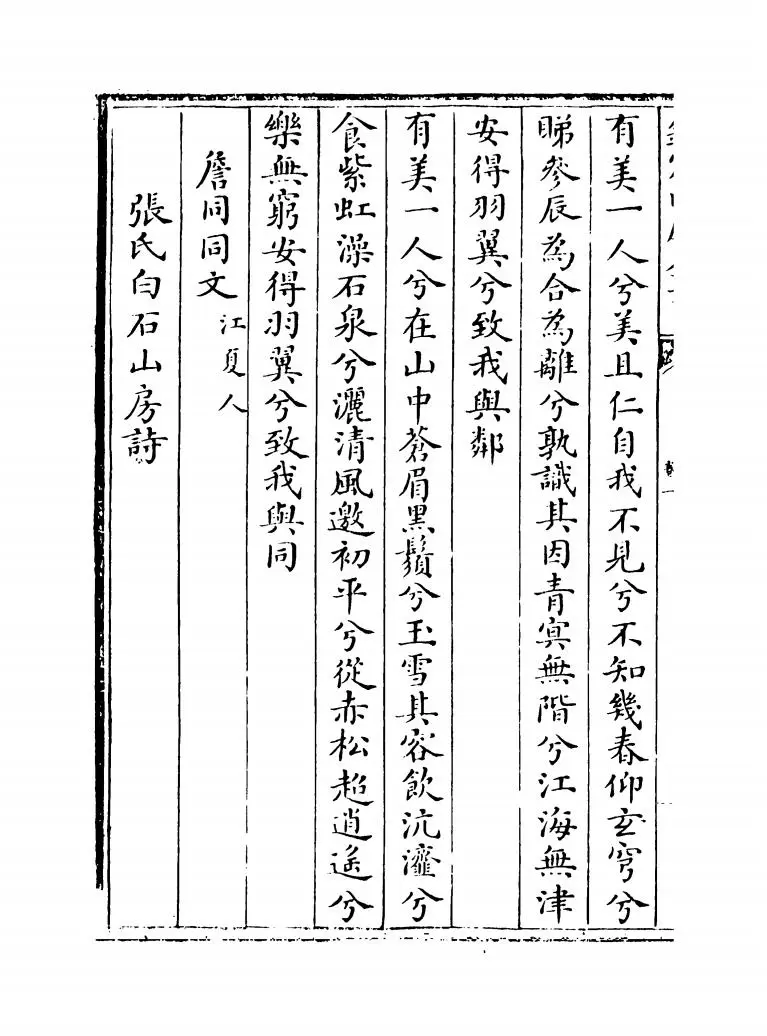 有美一人兮美且仁自我不見兮不知幾春仰玄穹兮
睇參辰為合為離兮孰識其因青冥無階兮江海無津
安得羽翼兮致我與鄰
有美一人兮在山中蒼眉黑鬚兮玉雪其容飲沆瀣兮
食紫虹澡石泉兮灑清風邀初平兮從赤松超逍遙兮
樂無窮安得羽翼兮致我與同
詹同同文江夏人
張氏白石山房詩